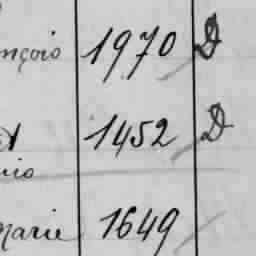 nçois 1970 D
1452 D
Marie 1649